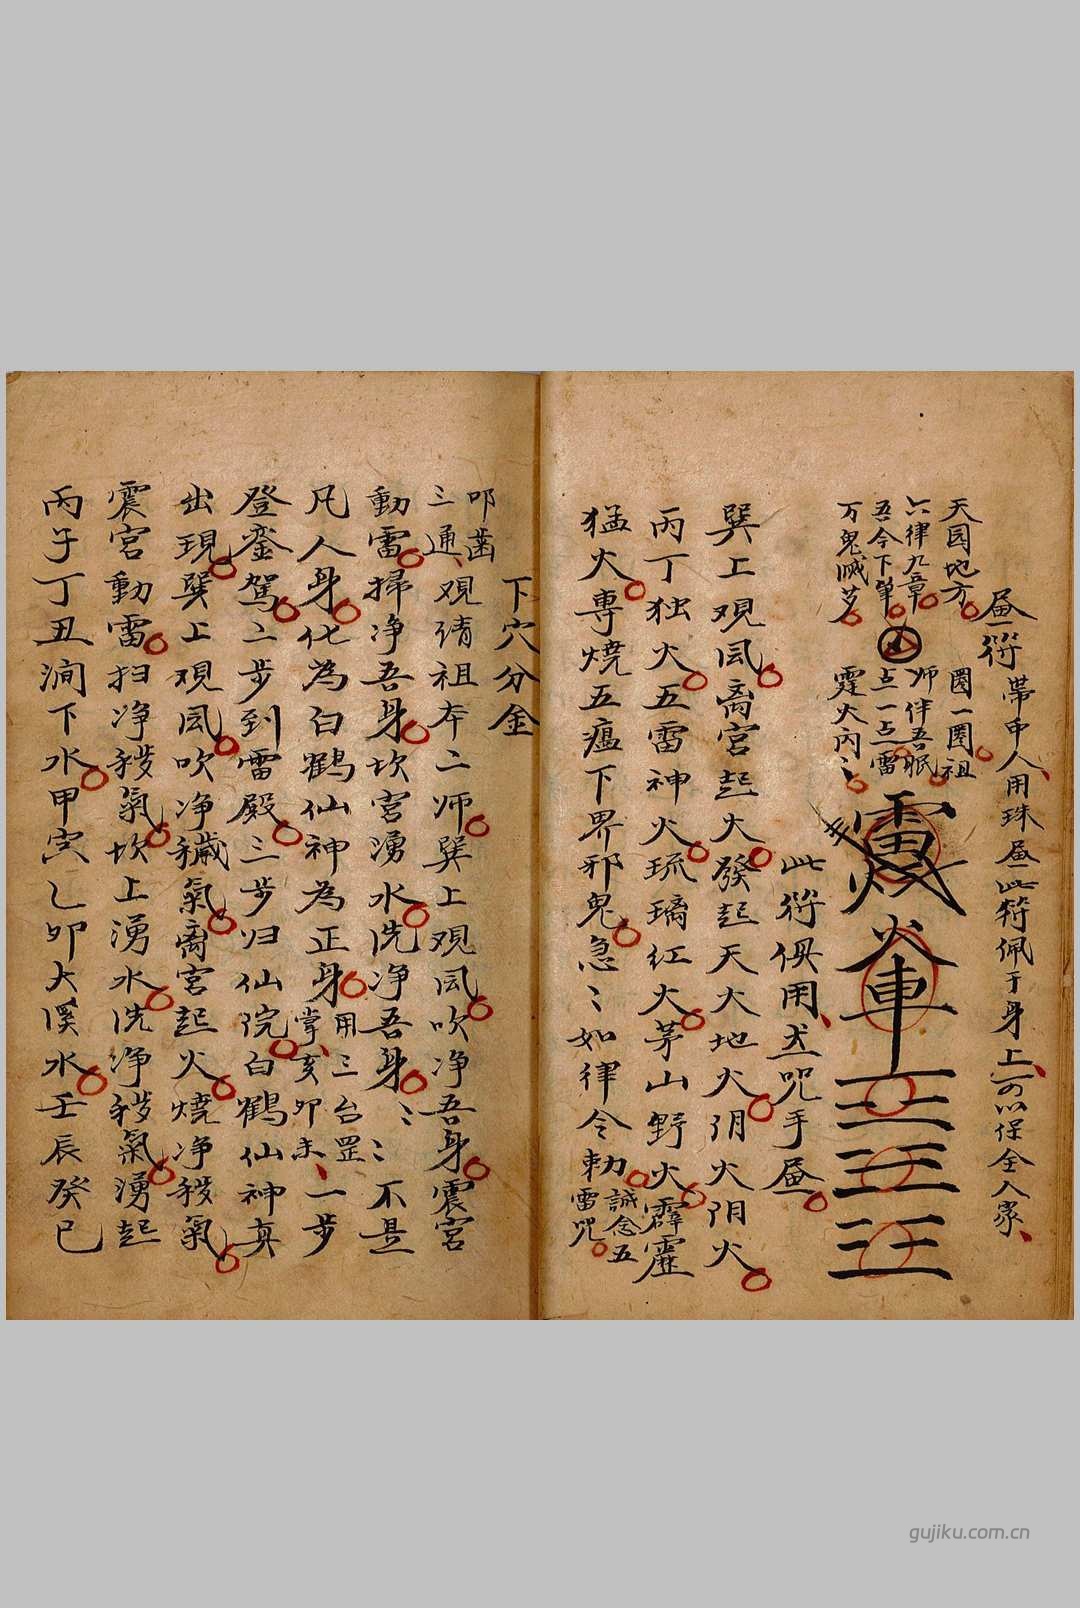 画一符帶中人用珠画此符佩于身上可以保全入家
天园地方
六律九章
吾今下筆
万鬼滅茫
圈一圈祖
师伴吾眠
点一点雷
霆火丙〻
此符俱用
咒手画
巽上观风离宫起火發起天火地火阴火阴火
丙丁独火五雷神火琉璃红火茅山野火霹靂
猛火專燒五瘟下界邪鬼急〻如律令勅
誠念五
雷咒
下穴分金
叩齒
三通观靖祖本二师巽上观风吹净吾身震宮
動雷掃净吾身坎宮湧水洗净吾身〻〻不是
凡人身化為白鶴仙神為正身
用三台罡
掌亥卯未
一步
登銮驾二步到雷殿三步归仙院白鶴仙神真
出現巽上观风吹净穢氣离宮起火燒净秽氣
震宮動雷扫净秽氣坎上湧水洗净秽氣湧起
丙子丁丑涧下水甲寅乙卯大溪水壬辰癸巳
gujiku.com.cn